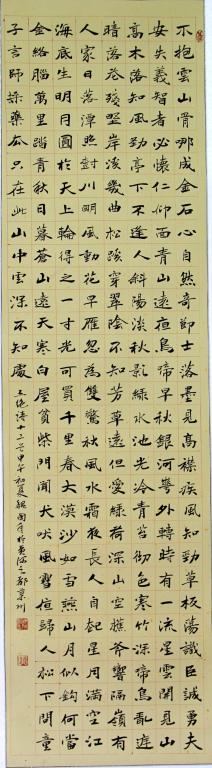 不抱雲山骨哪成金石心自然奇節士落墨見高襟疾風知勁草板蕩識誠臣勇夫
安失義智者必懷仁仰面青山遠夜烏啼早秋銀河外轉時有一流星雲開見山
高木落知風勁亭下不逢人斜陽淡秋影綠水池光冷青苔砌色寒竹深啼鳥亂庭
暗落花殘野岸溪幾曲松蹊穿翠陰不知芳草遠但愛綠荷深山空樵斧響隔嶺有
人家日落潭照樹川明風動花早雁忽為雙驚秋風水霜夜長人自起星月滿空江
海底生明月圓於天上輪得之一寸光可買千里春大漠沙如雪燕山月似鉤何當
金絡腦萬里踏青秋日暮蒼山遠天寒白屋貧柴門聞犬吠風雪夜歸人松下問童
子言師採藥去只在此山中雲深不知處 五絕詩十二首甲午初夏